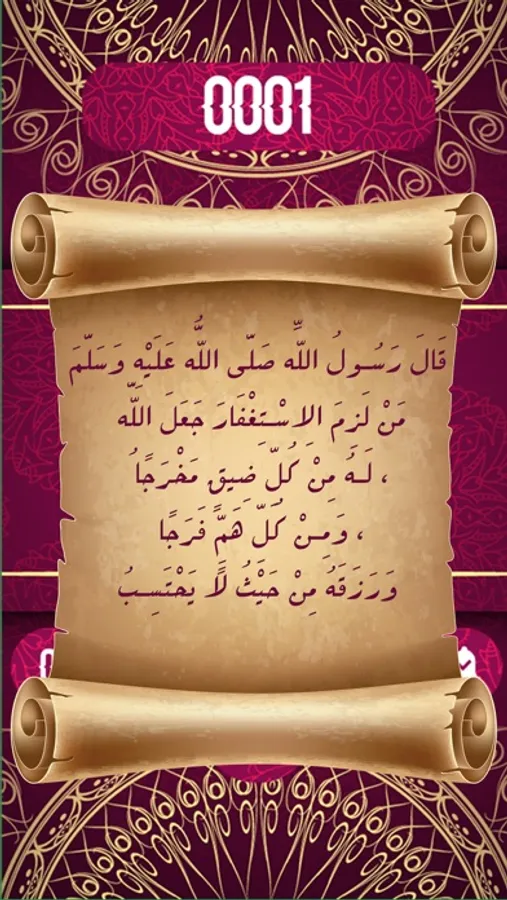 0001
قَالَ رَسُولُ اللَّهِ صَلَّى اللَّهُ عَلَيْهِ وَسَلَّمَ
مَنْ لَزِمَ الِاسْتِغْفَارَ جَعَلَ اللَّهُ
، لَهُ مِنْ كُلِّ ضِيقٍ مَخْرَجًا
، وَمِنْ كُلِّ هَمٍّ فَرَجًا
وَرَزَقَهُ مِنْ حَيْثُ لَا يَحْتَسِبُ